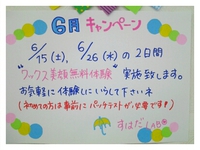 6月 キャンペーン
6/15(土), 6/26(水) の 2日間
"ワックス美顔無料体験" 実施致します。
お気軽に 体験しにいらして下さいネ
(初めての方は事前に パッチテストが必要です!)
すはだLABO